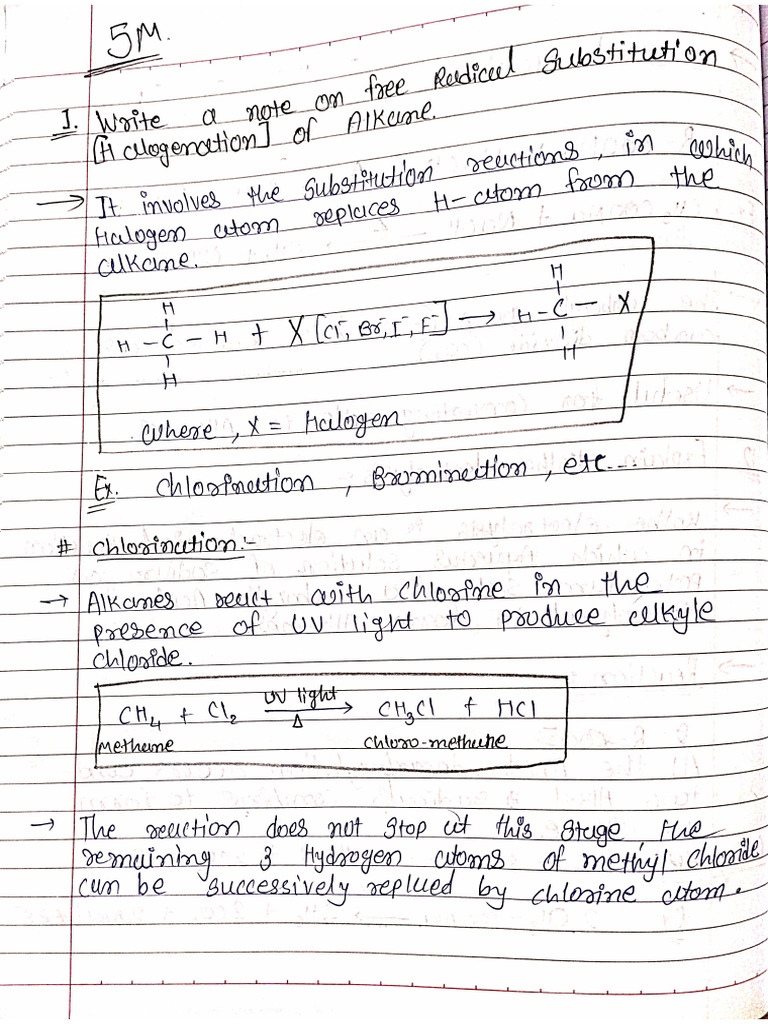 5M.
1. Write a note on free Radical Substitution
[Halogenation] of Alkane.
→ It involves the Substitution reactions, in which
Halogen atom replaces H-atom from the
alkane.
H H
H - C - H + X [Cl⁻, Br⁻, I⁻, F⁻] → H - C - X
H H
where, X = Halogen
Ex. Chlorination, Bromination, etc....
# Chlorination:-
→ Alkanes react with chlorine in the
presence of UV light to produce alkyle
chloride.
CH₄ + Cl₂ UV light/Δ → CH₃Cl + HCl
Methane chloro-methane
→ The reaction does not stop at this stage, the
remaining 3 Hydrogen atoms of methyl chloride
can be successively replaced by chlorine atom.